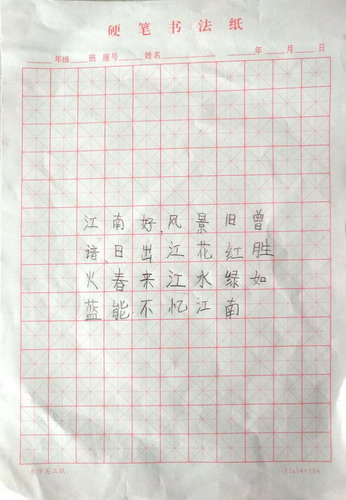 硬笔书法纸
年级 班 座号 姓名 年 月 日
江南好,风景旧曾
谙,日出江花红胜
火春来江水绿如
蓝能不忆江南